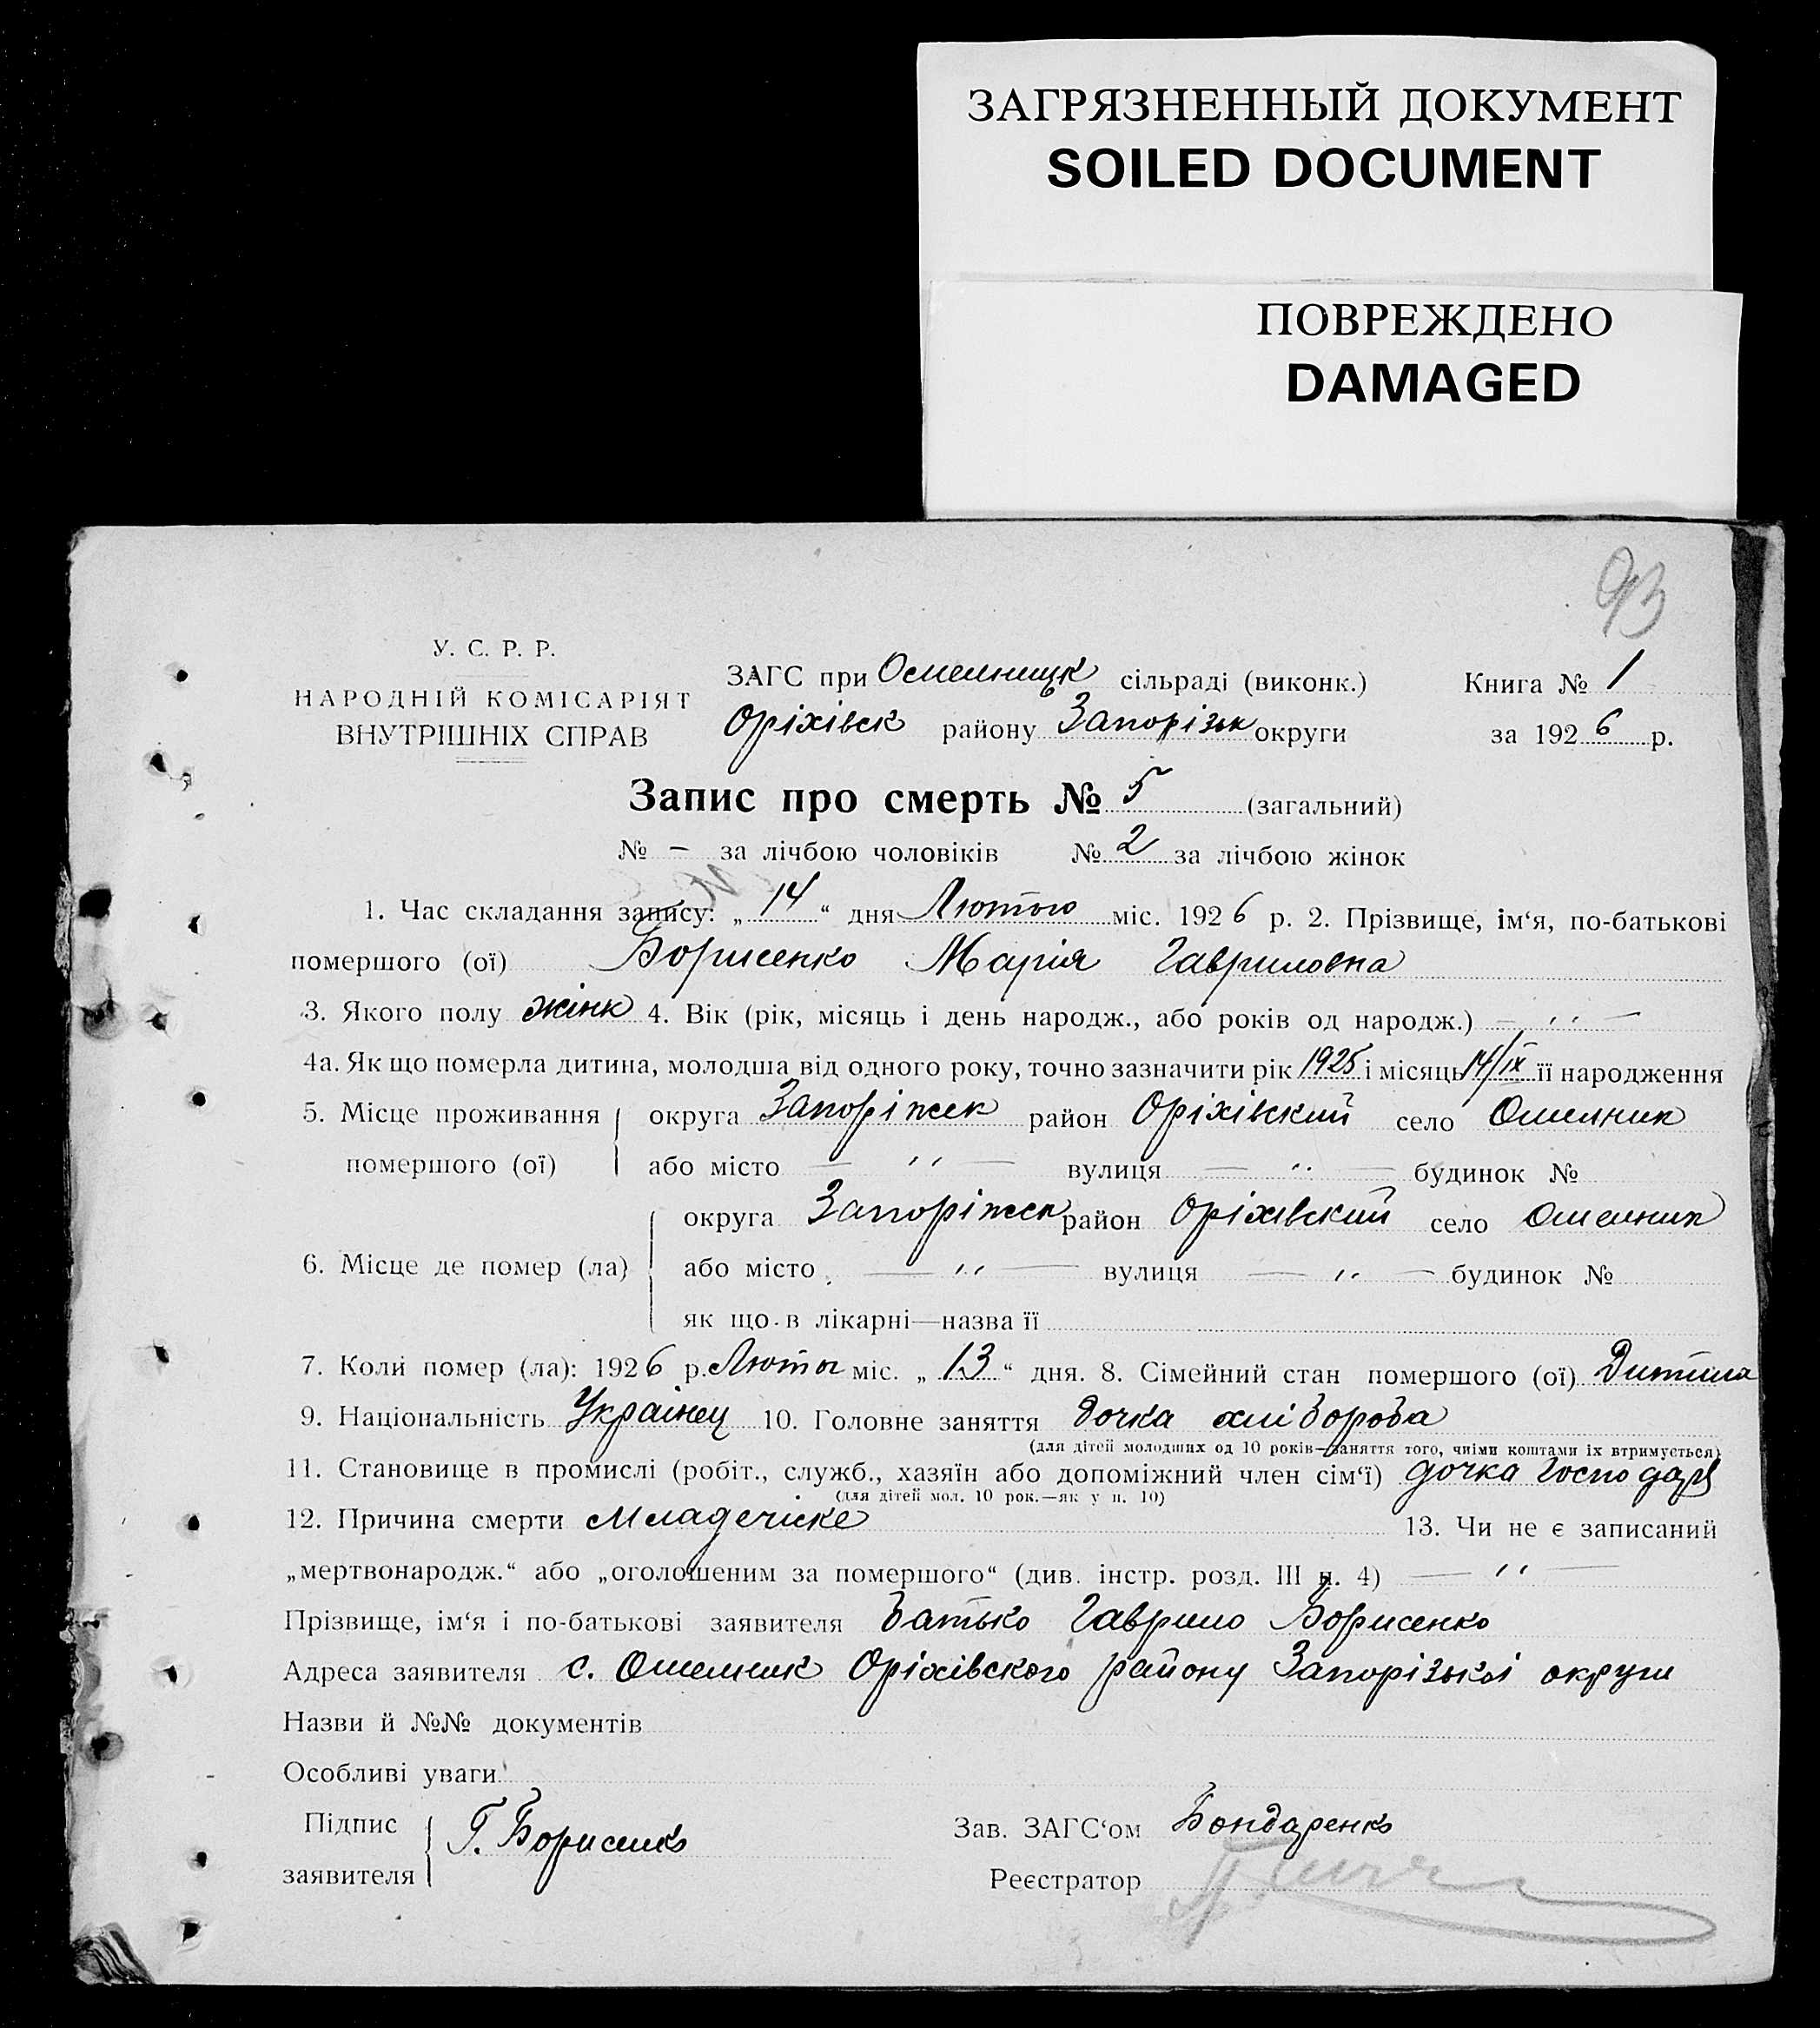 ЗАГРЯЗНЕННЫЙ ДОКУМЕНТ
SOILED DOCUMENT
ПОВРЕЖДЕНО
DAMAGED
93
У. С. Р. Р.
НАРОДНІЙ КОМІСАРІЯТ
ВНУТРІШНІХ СПРАВ
ЗАГС при Омельницьк сільраді (виконк.) Книга № 1
Оріхівськ району Запорізьк округи за 1926 р.
Запис про смерть № 5 (загальний)
№ – за лічбою чоловіків № 2 за лічбою жінок
1. Час складання запису: „ 14 “ дня Лютого міс. 1926 р. 2. Прізвище, ім‘я, по-батькові
помершого (ої) Борисенко Марія Гавриловна
3. Якого полу жінк 4. Вік (рік, місяць і день народж., або років од народж.) – ‚‚ –
4а. Як що померла дитина, молодша від одного року, точно зазначити рік 1925 і місяць 14/ІХ її народження
5. Місце проживання округа Запоріжск район Оріхівский село Омелник
помершого (ої) або місто – ‚‚ – вулиця – ‚‚ – будинок №
округа Запоріжск район Оріхівский село Омелник
6. Місце де помер (ла) або місто – ‚‚ – вулиця – ‚‚ – будинок №
як що в лікарні—назва її
7. Коли помер (ла): 1926 р. Люты міс. „ 13 “ дня. 8. Сімейний стан помершого (ої) Дитина
9. Національність Українец 10. Головне заняття дочка хліборова
(для дітей молодших од 10 років—заняття того, чиїми коштами їх втримується)
11. Становище в промислі (робіт., служб., хазяїн або допоміжний член сім‘ї) дочка господаря
(для дітей мол. 10 рок.—як у п. 10)
12. Причина смерти Младечіске 13. Чи не є записаний
„мертвонародж.“ або „оголошеним за помершого“ (див. інстр. розд. III п. 4) – ‚‚ –
Прізвище, ім‘я і по-батькові заявителя Батько Гаврило Борисенко
Адреса заявителя с. Омельник Оріхівского району Запорізької округи
Назви й №№ документів
Особливі уваги
Підпис
заявителя Г. Борисенко
Зав. ЗАГС‘ом Бондаренко
Реєстратор